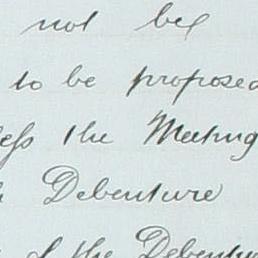 not be
to be proposed
less the Meeting
Debenture
of the Debentu